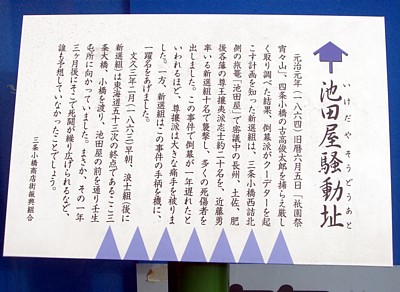 池田屋騒動址
いけだやそうどうあと
元治元年(一八六四)旧暦六月五日「祇園祭
宵々山」、四条小橋の古高俊太郎を捕らえ厳し
く取り調べた結果、倒幕派がクーデターを起
こす計画を知った新選組は、三条小橋西詰北
側の旅篭「池田屋」で密議中の長州、土佐、肥
後各藩の尊王攘夷派志士約二十名を、近藤勇
率いる新選組十名で襲撃し、多くの死傷者を
出しました。この事件で倒幕が一年遅れたと
いわれるほど、尊攘派は大きな痛手を被りま
した。一方、新選組はこの事件の手柄を機に、
一躍名をあげました。
文久三年二月(一八六三)早朝、浪士組(後に
新選組)は東海道五十三次の終点であるここ三
条大橋、小橋を渡り、池田屋の前を通り壬生
屯所に向かっていました。まさか、その一年
三ヶ月後にそこで死闘が繰り広げられるなど、
誰も予想していなかったことでしょう。
三条小橋商店街振興組合